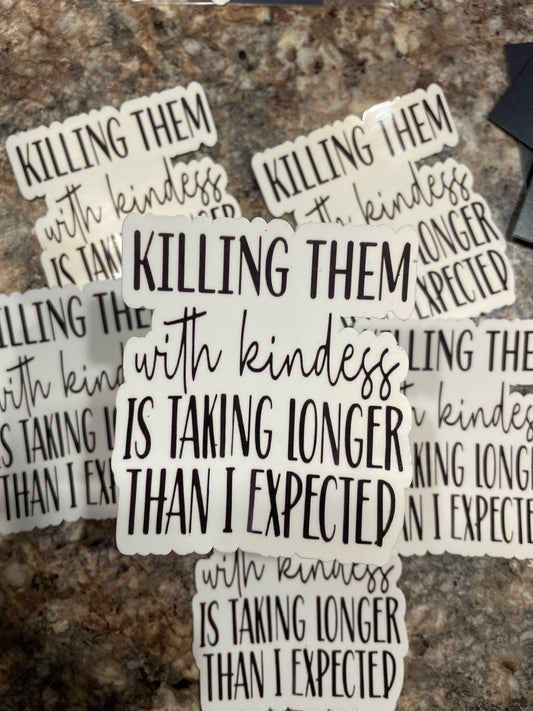 KILLING THEM
with kindess
IS TAKIN
KILLING THEM
with kindess
LONGER
EXPECTED
KILLING THEM
with kindess
IS TAKING LONGER
THAN I EXPECTED
ILLING THE
with kind
IS TAKING L
THAN I EX
LLING THE
kindes
KING LONGER
N I EXPECTED
with kindess
IS TAKING LONGER
THAN I EXPECTED